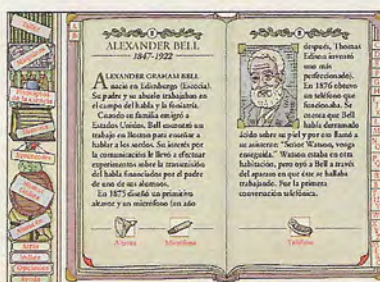 ALEXANDER BELL
1847-1922
ALEXANDER GRAHAM BELL
nació en Edimburgo (Escocia).
Su padre y su abuelo trabajaban en
el campo del habla y la foniatría.
Cuando su familia emigró a
Estados Unidos, Bell encontró un
trabajo en Boston para enseñar a
hablar a los sordos. Su interés por
la comunicación le llevó a efectuar
experimentos sobre la transmisión
del habla financiados por el padre
de uno de sus alumnos.
En 1875 diseñó un primitivo
altavoz y un micrófono (un año
Altavoz
Micrófono
después, Thomas
Edison inventó
uno más
perfeccionado).
En 1876 obtuvo
un teléfono que
funcionaba. Se
cuenta que Bell
había derramado
ácido sobre su piel y por eso llamó a
su asistente: "Señor Watson, venga
enseguida." Watson estaba en otra
habitación, pero oyó a Bell a través
del aparato en que éste se hallaba
trabajando. Fue la primera
conversación telefónica.
Teléfono
Taller
Máquinas
Principios
de la Ciencia
Historia
Inventores
Atrás
Índice
Opciones
Ayuda